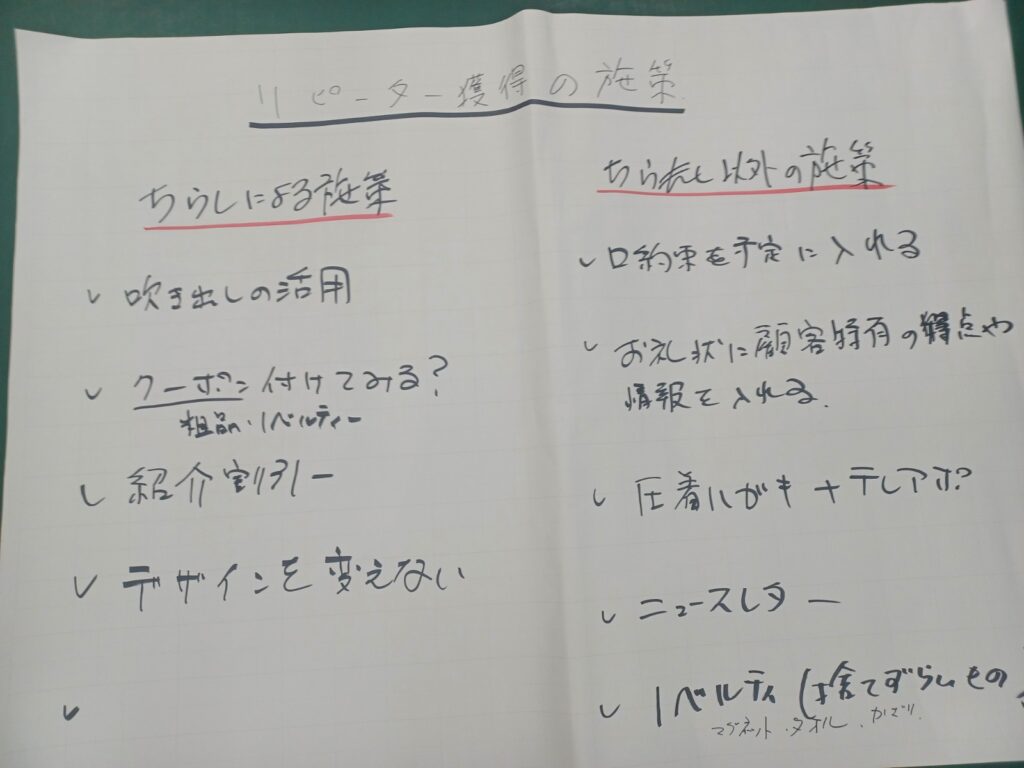 リピーター獲得の施策
ちらしによる施策
吹き出しの活用
クーポン付けてみる?
粗品・ノベルティー
紹介割引ー
デザインを変えない
ちらし以外の施策
口約束を予定に入れる
お礼状に顧客特有の得点や
情報を入れる.
圧着ハガキ+テレアポ?
ニュースレター
ノベルティ(捨てずらいもの
マグネット.タオル.